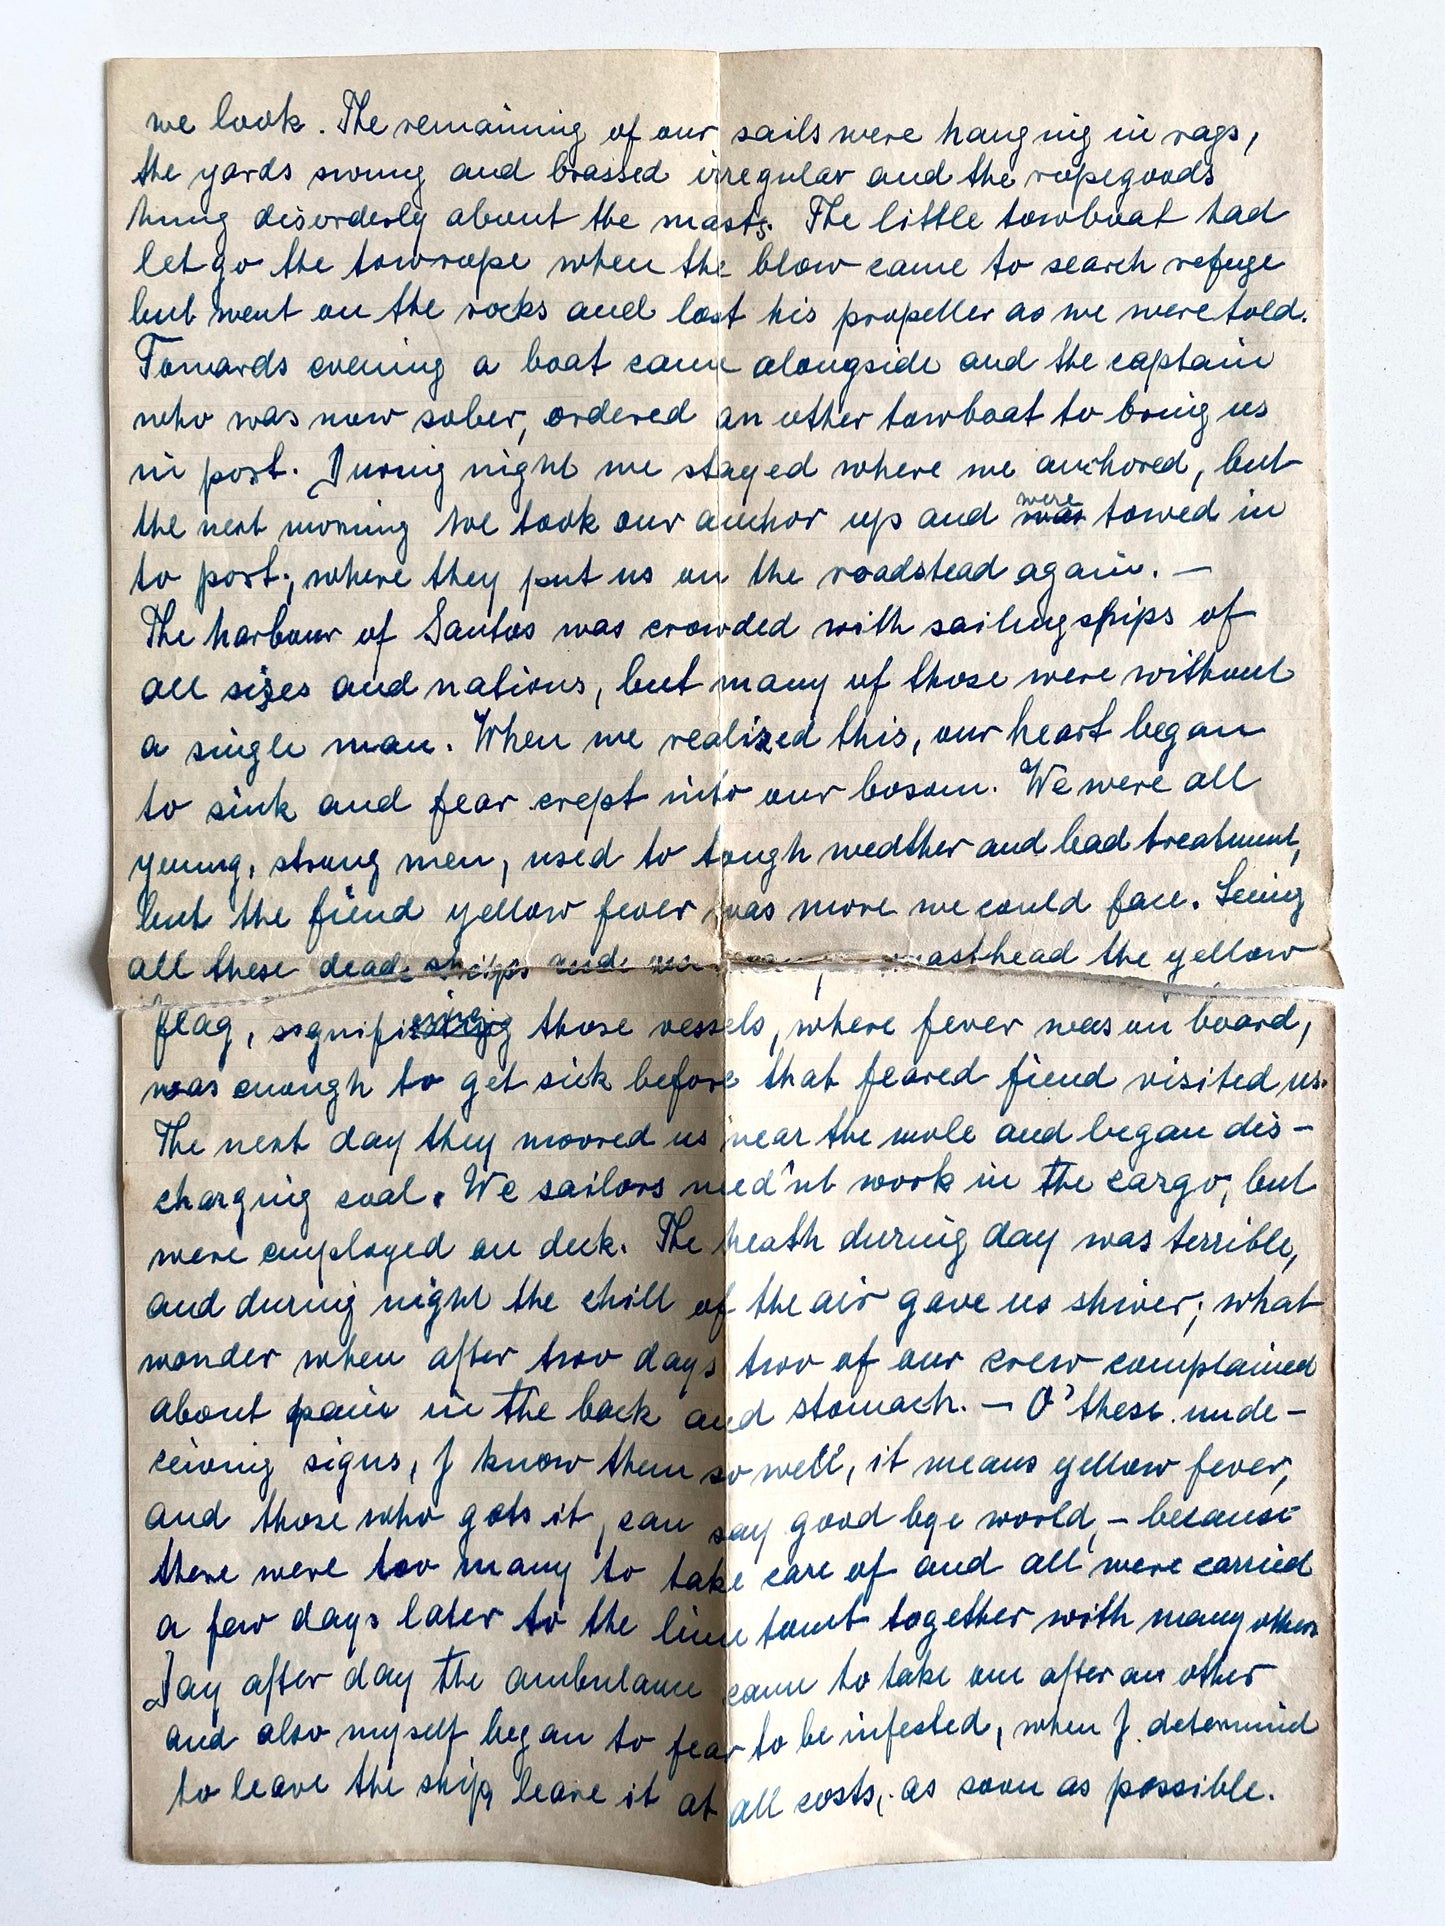 we look. The remaining of our sails were hanging in rags,
the yards swung and brassed irregular and the ropegoods
hung disorderly about the masts. The little towboat had
let go the towrope when the blow came to search refuge
but went on the rocks and lost his propeller as we were told.
Towards evening a boat came alongside and the captain
who was now sober, ordered an other towboat to bring us
in port. During night we stayed where we anchored, but
the next morning we took our anchor up and were towed in
to port; where they put us on the roadstead again. —
The harbour of Santos was crowded with sailingships of
all sizes and nations, but many of those were without
a single man. When we realized this, our heart began
to sink and fear crept into our bosom. We were all
young, strong men, used to tough wedther and bad treatment,
but the fiend yellow fever was more we could face. Seeing
all these dead ships masthead the yellow
flag, signifiing those vessels, where fever was on board,
was enough to get sick before that feared fiend visited us.
The next day they moored us near the mole and began dis-
charging coal. We sailors need'nt work in the cargo, but
were employed on deck. The heath during day was terrible,
and during night the chill of the air gave us shiver; what
wonder when after two days two of our crew complained
about pain in the back and stomach. — O' these unde-
ceiving signs, I know them so well, it means yellow fever,
and those who gets it, can say good bye world, — because
there were too many to take care of and all were carried
a few days later to the lime tomb together with many others
Day after day the ambulance came to take one after an other
and also myself began to fear to be infested, when I determind
to leave the ship, leave it at all costs, as soon as possible.